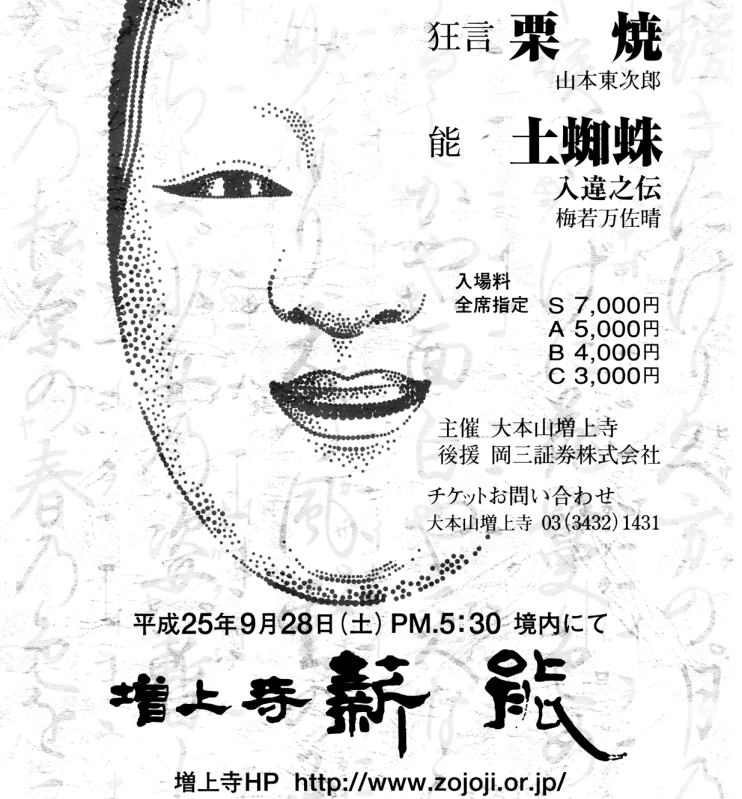 狂言 栗 焼
山本東次郎
能 土蜘蛛
入違之伝
梅若万佐晴
入場料
全席指定 S 7,000円
A 5,000円
B 4,000円
C 3,000円
主催 大本山増上寺
後援 岡三証券株式会社
チケットお問い合わせ
大本山増上寺 03(3432)1431
平成25年9月28日(土) PM.5:30 境内にて
増上寺薪能
増上寺HP http://www.zojoji.or.jp/